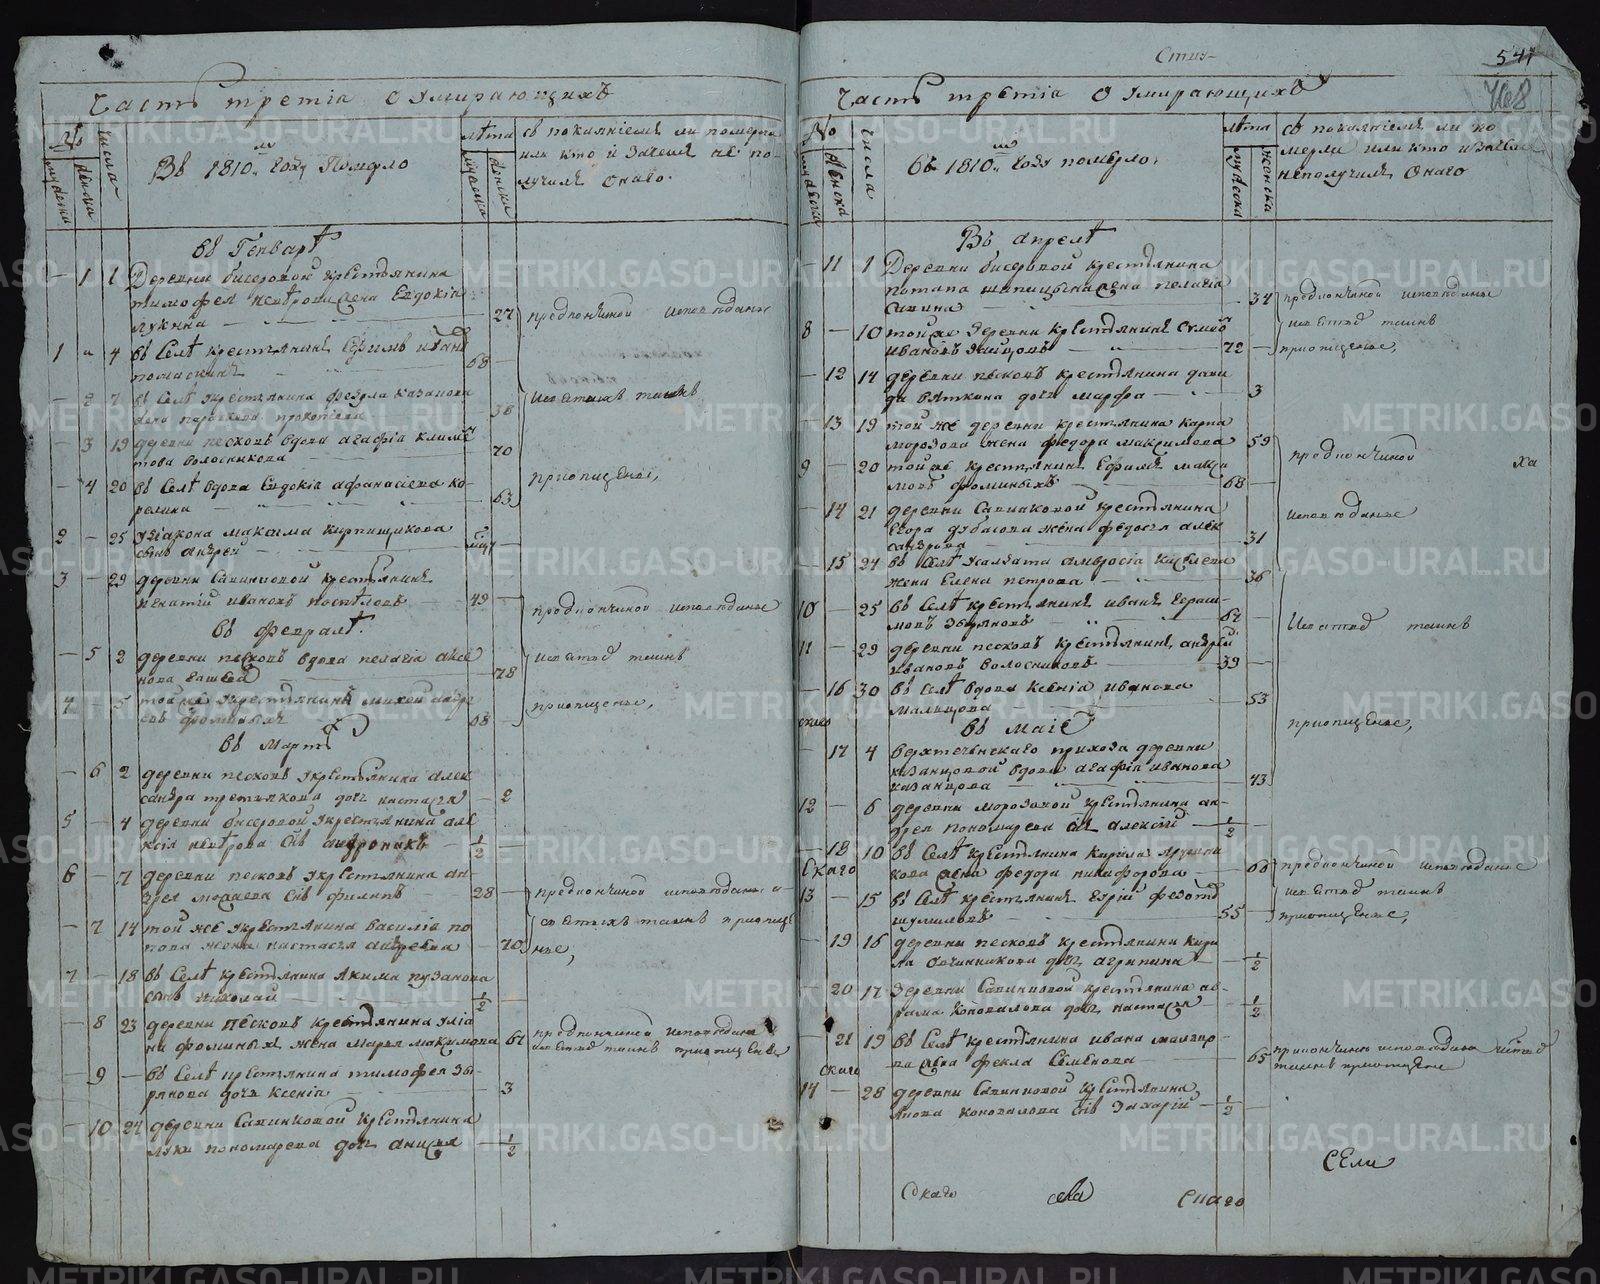 Часть третіа о Умирающихъ
№
числа
Въ 1810м году Померло
лѣта
съ покаяніемъ ли померли
или кто и зачемъ не по-
лучилъ онаго.
Въ Генварѣ
1 1 Деревни бисеровой крестьянина
тимофея жена Евдокіа
лукина 27
предкончиной исповѣданы
1 4 въ Селѣ крестьянинъ Ефимъ иванъ
68
2 7 въ Селѣ крестьянина федула казанцова
жена парасковіа прокопіева 38
и святыхъ таинъ
3 19 деревни песковъ вдова агафіа климен
това волосникова 70
4 20 въ Селѣ вдова Евдокіа афанасіева ко-
релина 63
приопщены,
2 25 діакона максима кирпищикова
сынъ андрей
3 29 деревни Савиновой крестьянинъ
игнатій ивановъ поспѣловъ 49
предкончиной исповѣданы
въ февралѣ.
5 2 деревни песковъ вдова пелагіа аксе
нова 78
и святыхъ таинъ
4 5 той же крестьянинъ михей андре
евъ фоминыхъ 68
приопщены,
въ Мартѣ
6 2 деревни песковъ крестьянина алек
сандра третьякова дочь настасья 2
5 4 деревни бисеровой крестьянина але
ксіа петрова сынъ андроникъ 1/2
6 7 деревни песковъ крестьянина ан-
дрея сынъ филипъ 28
предкончиной исповѣданы и
7 14 той же крестьянина василіа по
пова жена настасья андреева 70
святыхъ таинъ приопще
ны,
7 18 въ Селѣ крестьянина Акима пузанова
сынъ николай 1/2
8 23 деревни песковъ крестьянина уліа
на фоминыхъ жена марья максимова 61
предкончиной исповѣдана
и святыхъ таинъ приопщена
9 въ Селѣ крестьянина тимофея зы-
рянова дочь ксеніа 3
10 24 деревни Савинковой крестьянина
луки пономарева дочь анисья 1/2
547
468
Часть третіа о Умирающихъ
№
числа
Въ 1810м году померло.
лѣта
мужеска
женска
съ покаяніемъ ли по
мерли или кто и зачемъ
неполучилъ онаго
Въ апрелѣ
11 1 Деревни бисеровой крестьянина
потапа шипицына жена пелагіа
савина 34
предкончиной исповѣданы
8 10 той же деревни крестьянинъ
ивановъ зайцовъ 72
и святыхъ таинъ
приопщены,
12 14 деревни песковъ крестьянина дави
да вяткина дочь марфа 3
13 19 той же деревни крестьянина карпа
морозова жена федора максимова 59
предкончиной
9 20 той же крестьянинъ Ефимъ макси
мовъ фоминыхъ 68
14 21 деревни Савинковой крестьянина
Егора дубасова жена федосья алек
сандрова 31
исповѣданы
15 24 въ Селѣ солдата амвросіа киселева
жена Елена петрова 36
10 25 въ Селѣ крестьянинъ иванъ гераси-
мовъ зыряновъ 67
и святыхъ таинъ
11 29 деревни песковъ крестьянинъ андрей
ивановъ волосниковъ 39
16 30 въ Селѣ вдова ксеніа иванова
малцова 53
приопщены,
въ маіѣ
17 4 верхтеченскаго прихода деревни
казанцовой вдова агафіа иванова
казанцова 43
12 6 деревни морозовой крестьянина ан-
дрея пономарева сынъ алексій 1/2
18 10 въ Селѣ крестьянина кирила
кова жена федора никифорова 60
предкончиной исповѣданы
13 15 въ Селѣ крестьянинъ федотовъ
шумиловъ 55
и святыхъ таинъ
приопщены,
19 16 деревни песковъ крестьянина кири
ла овчинникова дочь агрипина 1/2
20 17 деревни Савинковой крестьянина ав-
рама коновалова дочь настасья 1/2
21 19 въ Селѣ крестьянина ивана
жена фекла Семенова 65
14 28 деревни Савинковой крестьянина
якова коновалова сынъ захарій 1/2
Скаго
села
Скаго
Сели
METRIKI.GASO-URAL.RU